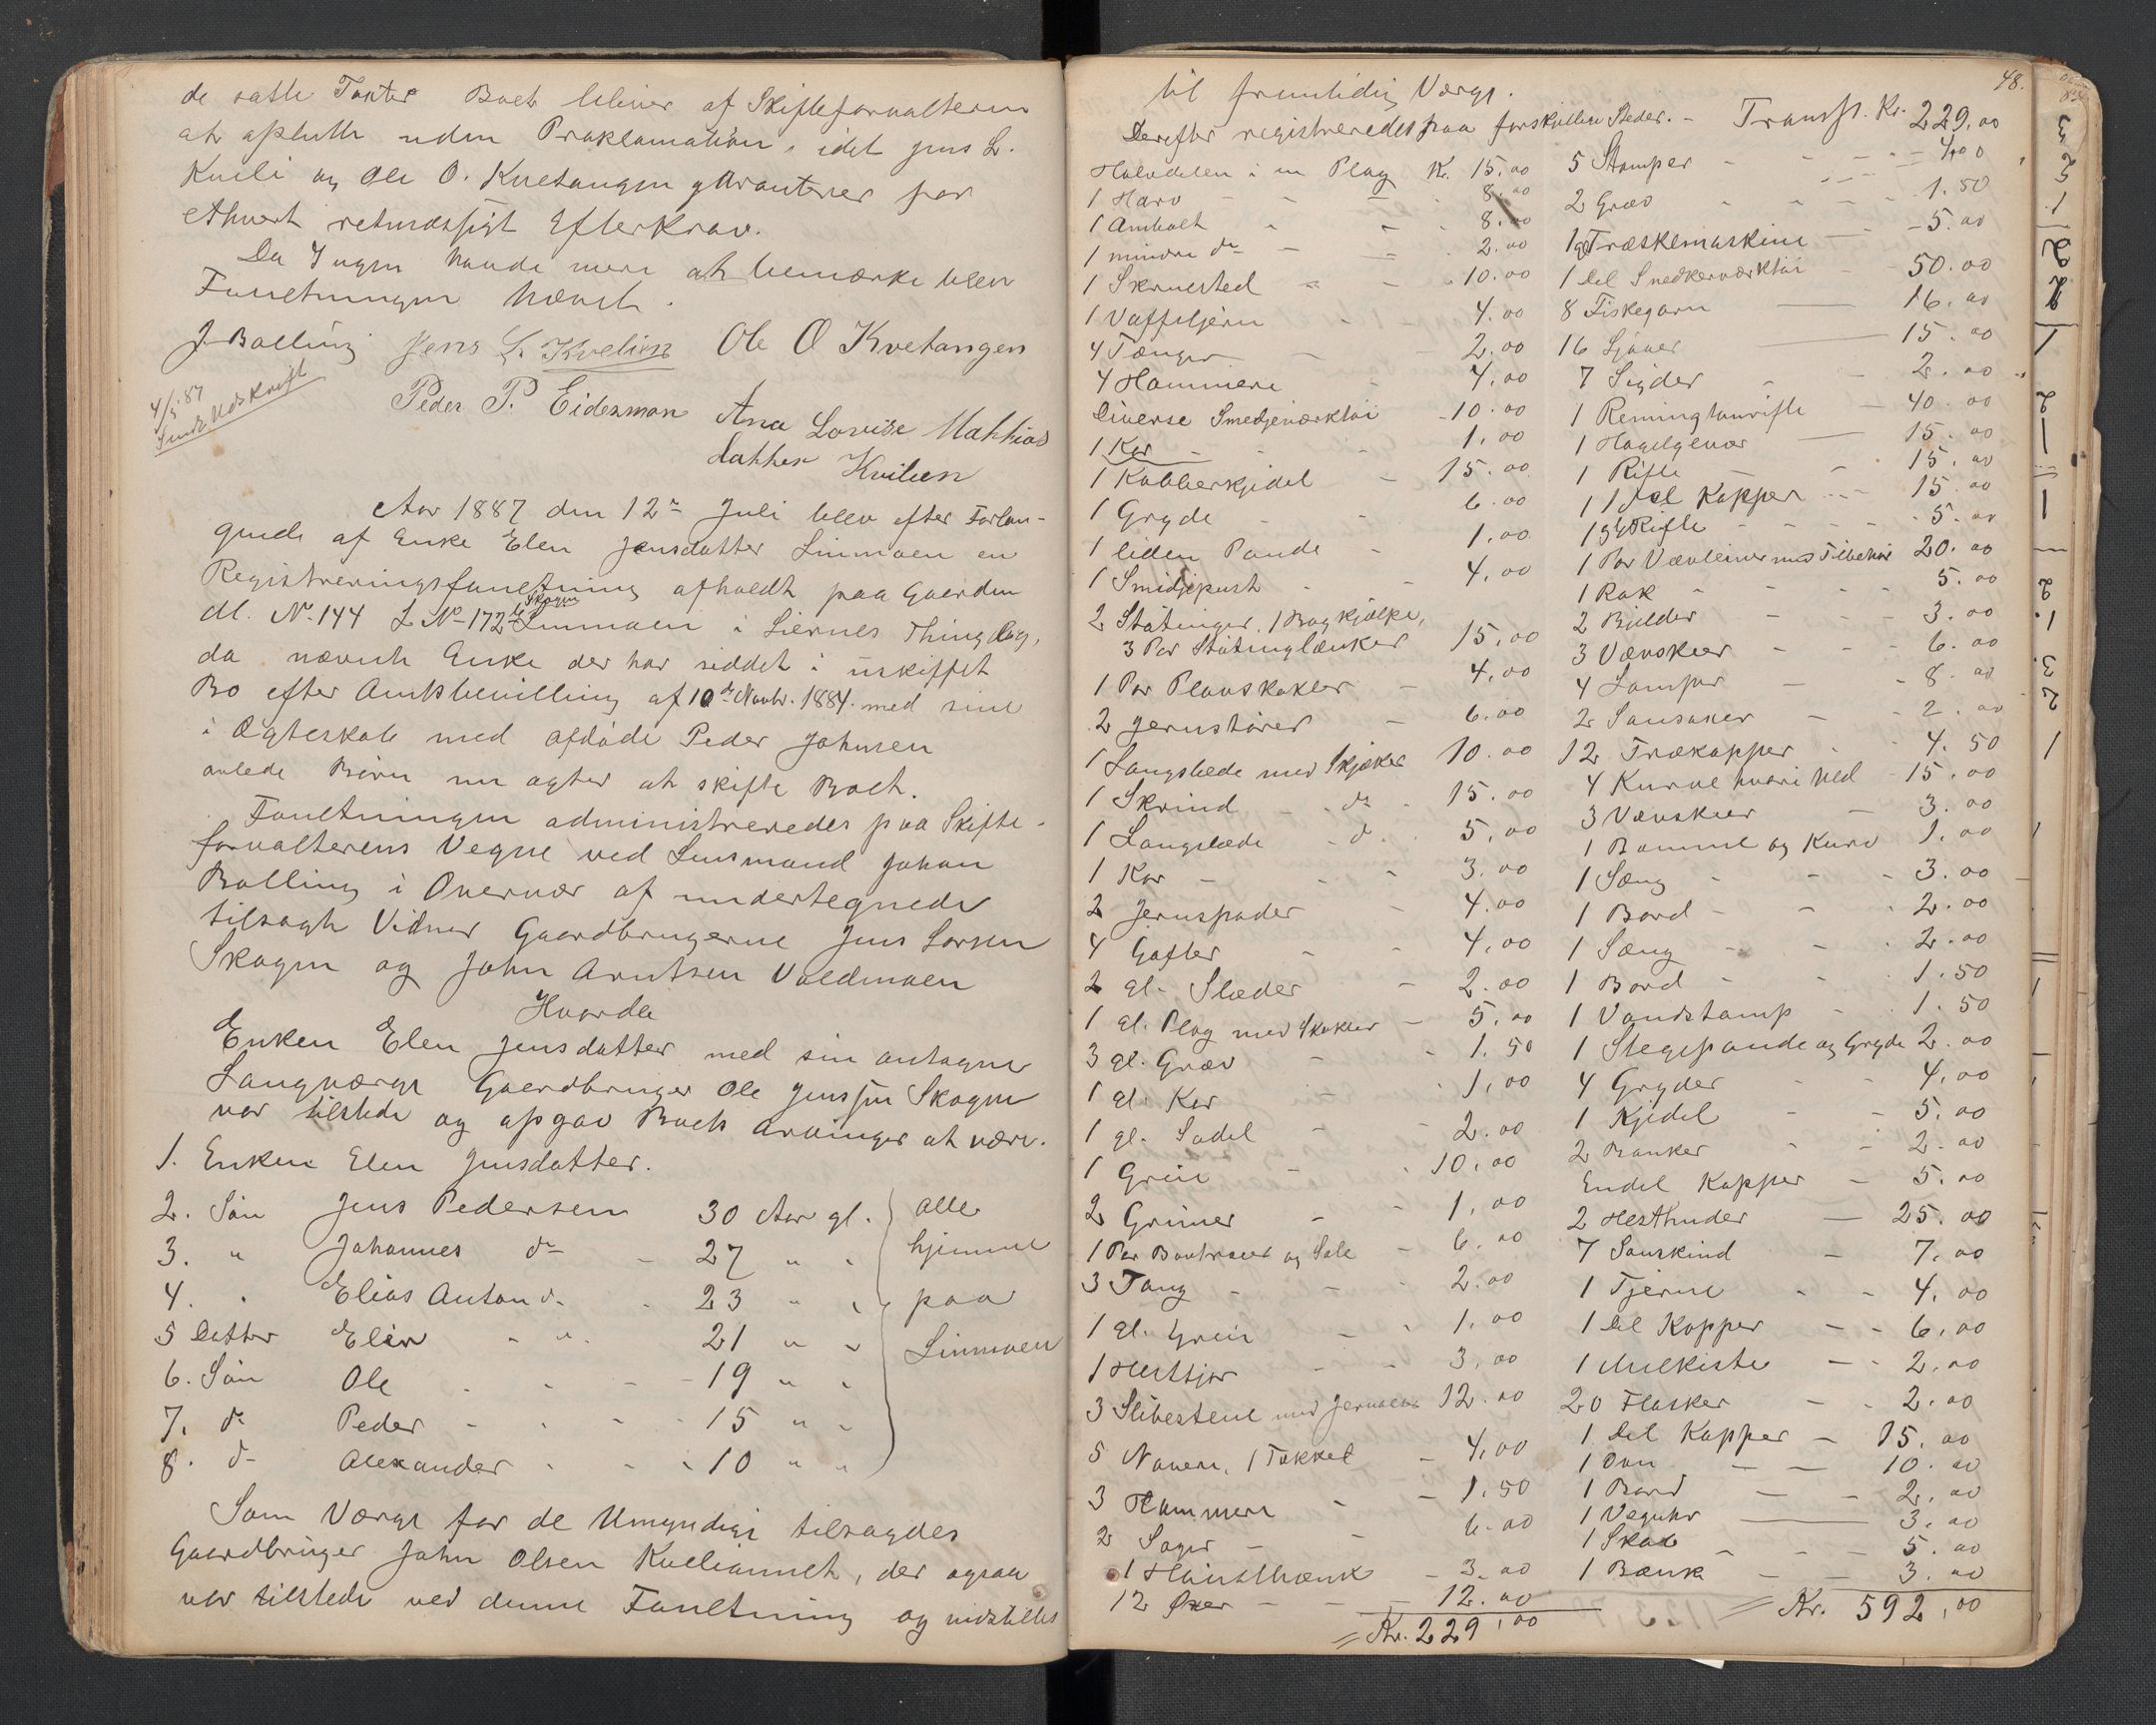 de satte Taxter Boet bliver af Skifteforvalteren
at afslutte uden Proklamation, idet Jens L.
Kveli og Ole O. Kvetangen garanterer for
ethvert retmæssigt Efterkrav.
Da Ingen havde mere at bemærke blev
Forretningen hævet.
J. Bolling Jens L. Kvelien Ole O Kvetangen
4/8 87
Sendt Udskrift
Peder P. Eidesmon Ana Lovise Mathias
datter Kvilien
Aar 1887 den 12te Juli blev efter Forlan-
gende af Enke Elen Jensdatter Linmoen en
Registreringsforretning afholdt paa Gaarden
M. No. 144 L No 172 b Skogen Linmoen i Liernes Thinglag,
da nævnte Enke der har siddet i uskiftet
Bo efter Amtsbevilling af 10de Novbr. 1884 med sine
i Ægteskab med afdøde Peder Johnsen
avlede Børn nu agter at skifte Boet.
Forretningen administreredes paa Skifte-
forvalterens Vegne ved Lensmand Johan
Bolling i Overvær af undertegnede
tilsagte Vidner Gaardbrugerne Jens Larsen
Skogen og John Arntsen Voldmoen
Hvorda
Enken Elen Jensdatter med sin antagne
Laugværge Gaardbruger Ole Jensen Skogen
var tilstede og opgav Boets Arvinger at være.
1. Enken Elen Jensdatter.
2. Søn Jens Pedersen 30 Aar gl. alle
3. " Johannes do - 27 " " hjemme
4. " Elias Anton do - 23 " " paa
5 Datter Elen - " - 21 " " Linmoen
6. Søn Ole - - - 19 " "
7. do Peder - - - 15 " "
8. do Alexander - - - 10 " "
Som Værge for de Umyndige tilsagdes
Gaardbruger John Olsen Kveliaunet, der ogsaa
var tilstede ved denne Forretning og indstilles
48.
til fremtidig Værge.
Derefter registreredes paa forskjellige Steder.
Halvdelen i en Plog Kr. 15.00
1 Harv 8.00
1 Ambolt 8.00
1 mindre do 2.00
1 Skruested 10.00
1 Vaffeljern 4.00
4 Tænger 2.00
4 Hammere 4.00
Diverse Smedjeværktøi 10.00
1 Kar 1.00
1 Kobberkjedel 15.00
1 Gryde 6.00
1 liden Pande 1.00
1 Smidjepust 4.00
2 Støtinger, 1 Bogkjølke,
3 Par Støtinglænker 15.00
1 Par Plovskokler 4.00
2 Jernstører 6.00
1 Langslæde med Skjæker 10.00
1 Skrind do 15.00
1 Langslæde do 5.00
1 Kar 3.00
2 Jernspader 4.00
4 Gafler 4.00
2 gl. Slæder 2.00
1 gl. Plog med Skokler 5.00
3 gl. Græv 1.50
1 gl. Kar 1.00
1 gl. Sadel 2.00
1 Greie 10.00
2 Grimer 1.00
1 Par og Sele 6.00
3 Tøug 2.00
1 gl. Greie 1.00
1 3.00
3 Slibestene med 12.00
5 Navere, 1 Tækkel 4.00
3 Hammere 1.50
2 Sager 6.00
1 3.00
12 Øxer 12.00
= Kr. 229.00
Transp. Kr. 229.00
5 Stamper 4.00
2 Græv 1.50
1 gl Træskemaskine 5.00
1 Del Snedkerværktøi 50.00
8 Fiskegarn 16.00
16 Ljaaer 15.00
7 Sigder 2.00
1 Remingtonrifle 40.00
1 Haglgevær 15.00
1 Rifle 15.00
1 Del Kopper 15.00
1 gl Rifle 5.00
1 Par Vævleiner med Tilbehør 20.00
1 Rok 5.00
2 Bjelder 3.00
3 Vævskeer 6.00
4 Lamper 8.00
2 Sausaxer 2.00
12 Trækopper 4.50
4 Kurve hvori Uld 15.00
3 Vævskeer 3.00
1 Bommel og Kurv 1.00
1 Sæng 3.00
1 Bord 2.00
1 Sæng 2.00
1 Bord 1.50
1 Vandstamp 1.50
1 Stegepande og Gryde 2.00
4 Gryder 4.00
1 Kjedel 5.00
2 Banker 2.00
Endel Kopper 5.00
2 Hesthuder 25.00
7 Sauskind 7.00
1 Tjerne 4.00
1 Del Kopper 6.00
1 Melkiste 2.00
20 Flasker 2.00
1 Del Kopper 15.00
1 Ovn 10.00
1 Bord 2.00
1 Væguhr 3.00
1 Skab 5.00
1 Bænk 3.00
= Kr. 592.00